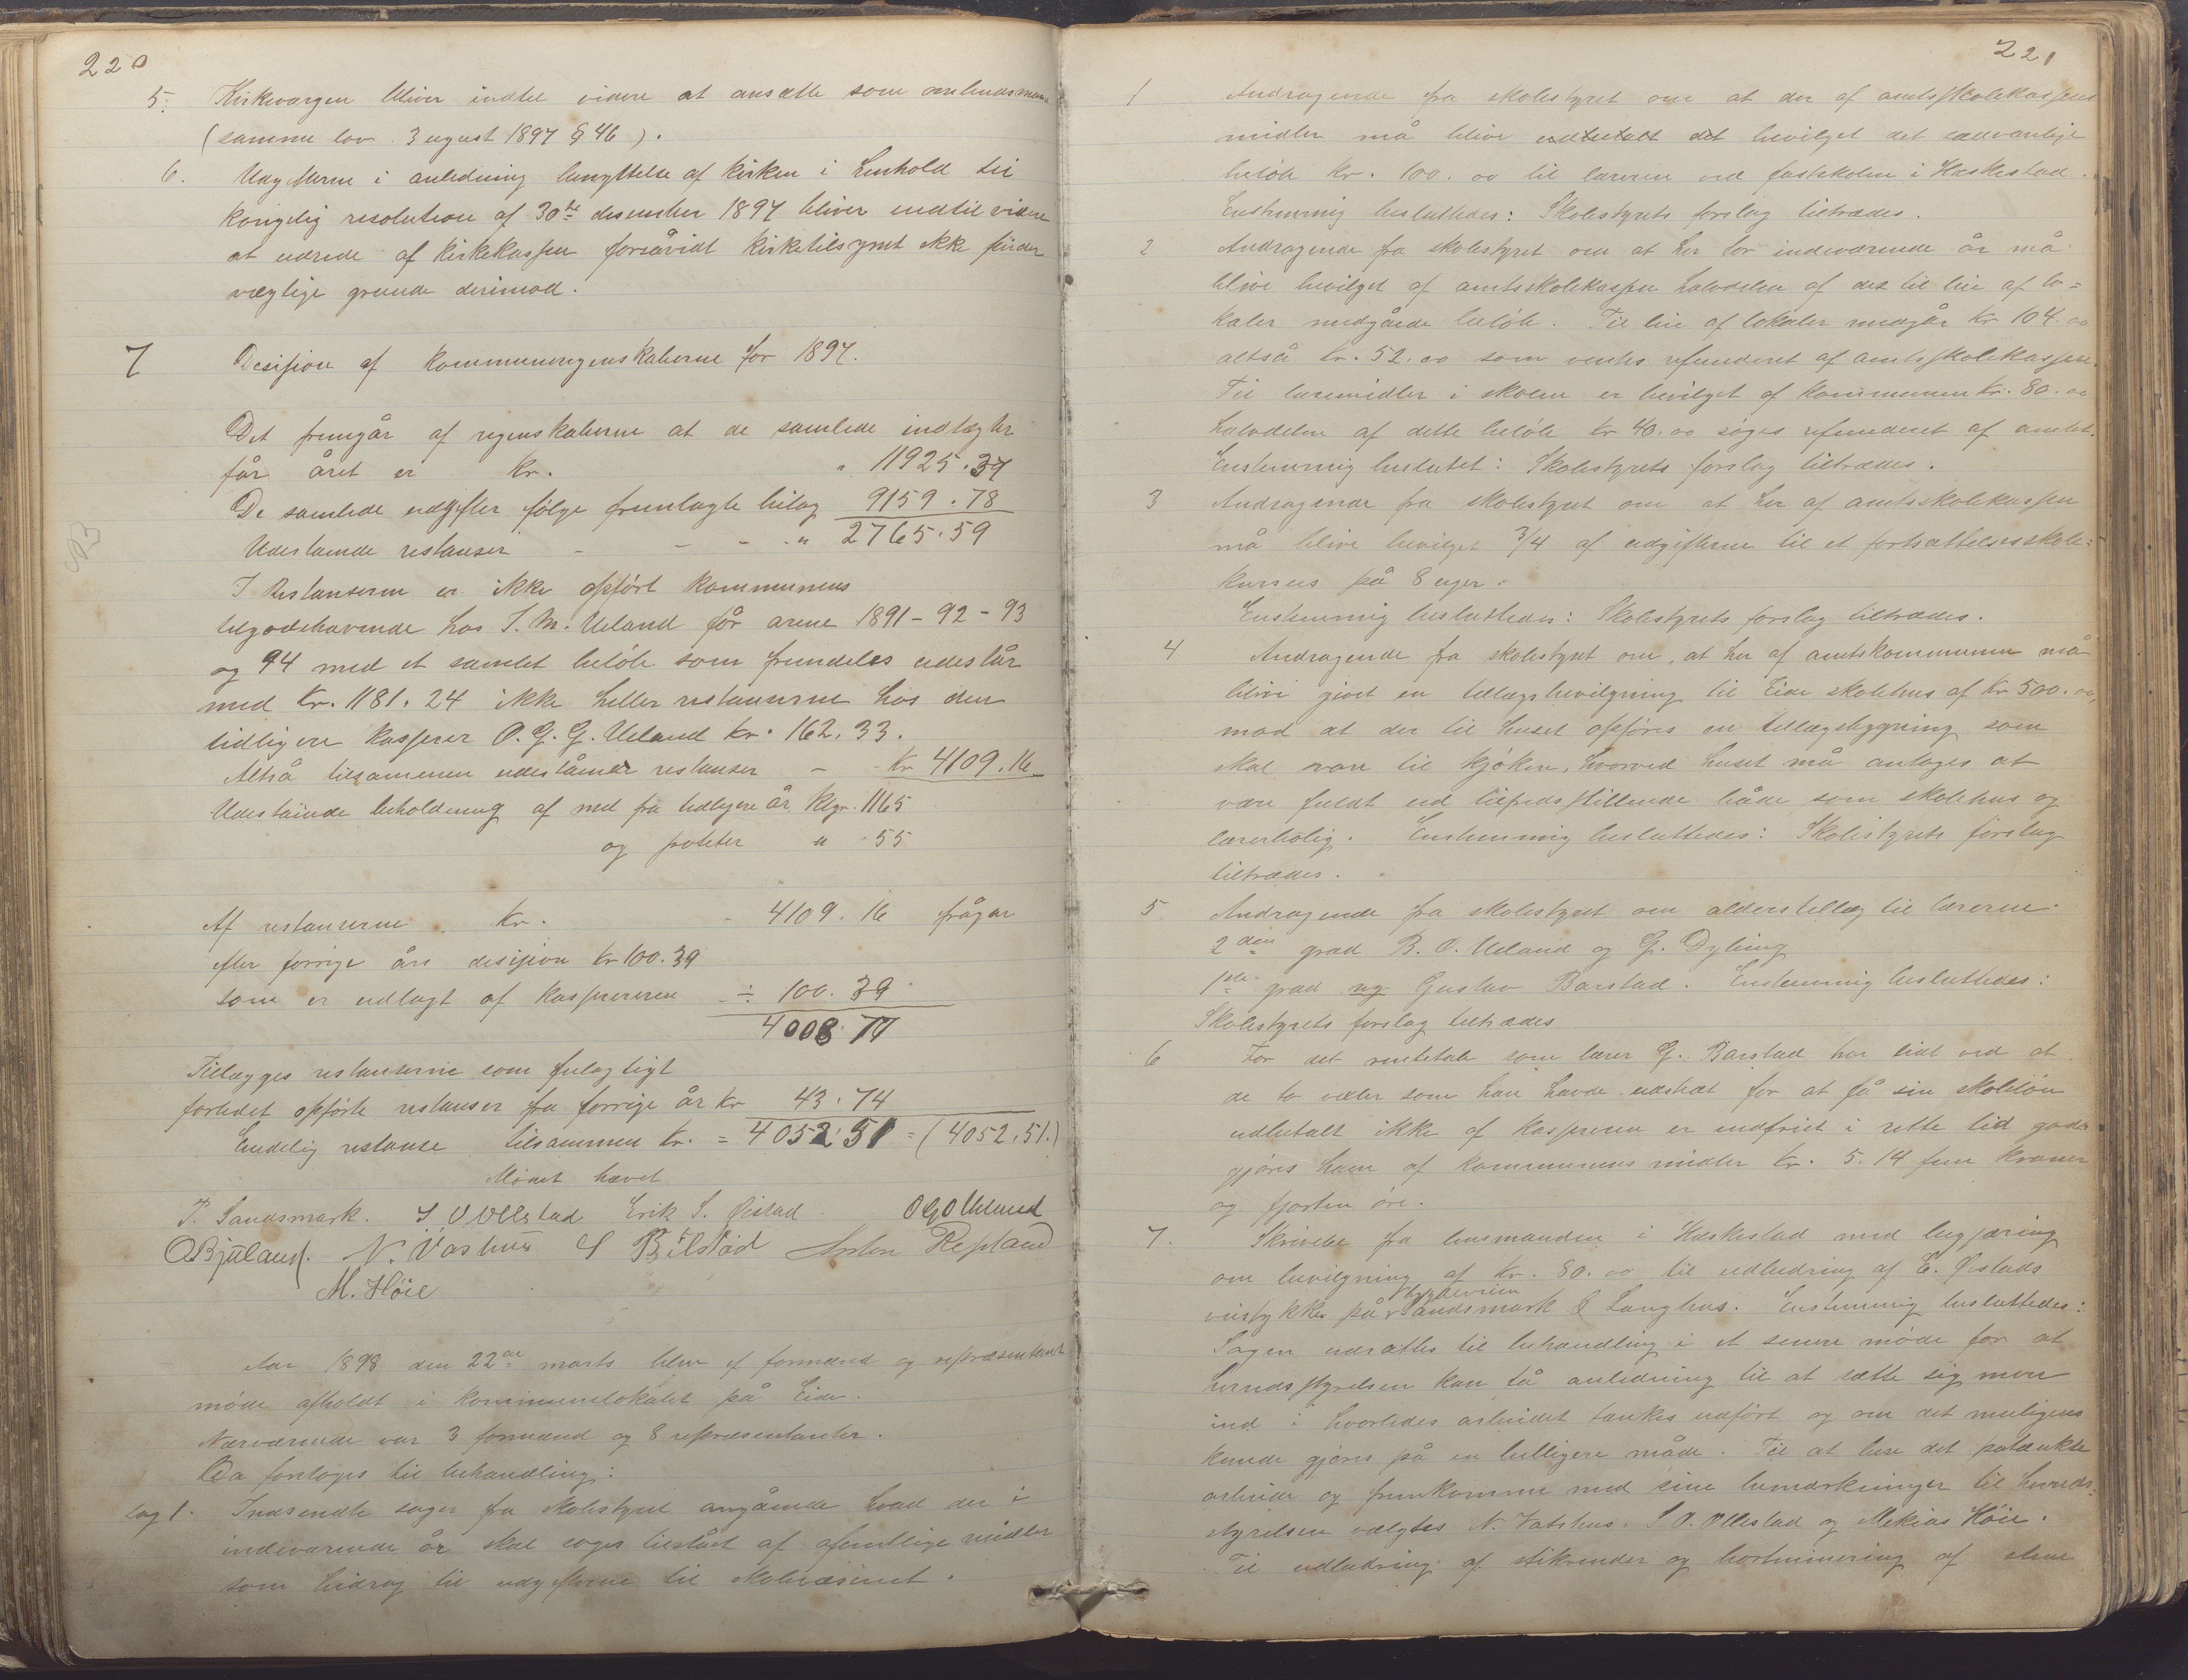 220
5. Kirkeværgen bliver indtil videre at ansætte som ombudsman
(samme lov 3 august 1897 § 46).
6. Udgifterne i anledning benyttelse af kirken i henhold til
kongelig resolution af 30te desember 1897 bliver indtil videre
at udrede af kirkekassen forsåvidt kirketilsynet ikke finder
vægtige grunde derimod.
7 Desisjion af kommuneregenskaberne for 1897.
Det fremgår af regenskaberne at de samlede indtægter
før året er kr. " 11925.37
De samlede udgifter følge fremlagte bilag 9159.78
Udestående restanser - - - " 2765.59
I Restanserne er ikke opført kommunens
tilgodehavende hos T. M. Ueland før årene 1891-92-93
og 94 med et samlet beløb som fremdeles udestår
med kr. 1181.24 ikke heller restanserne hos den
tidligere kasserer O. G. G. Ueland kr. 162.33.
Altså tilsammen udestående restanser - - kr 4109.16
Udestående beholdning af med fra tidligere år Klgr. 1165
og poteter " 55
Af restanserne kr. - 4109.16 frågår
efter forrige års desisjion kr 100.39
som er udlagt af kassereren ÷ 100.39
4008.77
Tillægges restanserne som feilagtigt
forledet opførte restanser fra forrige år kr 43.74
Endelig restanse tilsammen kr. = 4052.51 = (4052.51.)
Mødet hævet
P. Sandsmark. S O Ollestad Erik S. Øistad. O G O Ueland
O Bjuland. N. Vashus S Bilstad Anton Repland
M. Høie
Aar 1898 den 22de marts blev et formænd og repræsentant
møde afholdt i kommunelokalet på Eide.
Nærværende var 3 formænd og 8 repræsentanter.
Da foretoges til behandling:
Sag 1. Indsendte sager fra skolestyret angående hvad der i
indeværende år skal søges tilstået af ofentlige midler
som bidrag til udgifterne til skolevæsenet.
221
1 Andragende fra skolestyret om at der af amtsskolekassens
midler må blive udbetalt det bevilget det sædvanlige
beløb kr. 100.00 til læreren ved fastskolen i Hæskestad.
Enstemmig besluttedes: Skolestyrets forslag tiltrædes.
2 Andragende fra skolestyret om at her for indeværende år må
blive bevilget af amtsskolekassen halvdelen af det til leie af lo=
kaler medgåede beløb. Til leie af lokaler medgår kr 104.00
altså kr. 52.00 som ventes refunderet af amtsskolekassen.
Til læremidler i skolen er bevilget af kommunen kr. 80.00
halvdelen af dette beløb kr 40.00 søges refunderet af amtet.
Enstemmig besluttet: Skolestyrets forslag tiltrædes.
3 Andragende fra skolestyret om at her af amtsskolekassen
må blive bevilget 3/4 af udgifterne til et fortsættelsesskole=
kursus på 8 uger.
Enstemmig besluttedes: Skolestyrets forslag tiltrædes.
4 Andragende fra skolestyret om, at her af amtskommunen må
blive givet en tillægsbevilgning til Eide skolehus af kr 500.00,
mod at der til huset opføres en tillægsbygning som
skal være til kjøken, hvorved huset må antages at
være fuldt ud tilfredsstillende både som skolehus og
lærerbolig. Enstemmig besluttedes: Skolestyrets forslag
tiltrædes.
5 Andragende fra skolestyret om alderstillæg til lærerne.
2den grad B. O. Ueland og G. Dybing
1ste grad og Gustav Barstad. Enstemmig besluttedes:
Skolestyrets forslag tiltrædes
6 For det rentetab som lærer G. Barstad har lidt ved at
de to væler som han havde udstedt for at få sin skoleløn
udbetalt ikke af kassereren er indfriet i rette tid godt
gjøres ham af kommunens midler kr. 5.14 fem kroner
og fjorten øre.
7. Skrivelse fra lensmanden i Hæskestad med begjæring
om bevilgning af kr. 80.00 til udbedring af E. Øistads
veistykker på bygdeveien Sandsmark & Langhus. Enstemmig besluttedes:
Sagen udsættes til behandling i et senere møde for at
herredsstyrelsen kan få anledning til at sætte sig mere
ind i hvorledes arbeidet tænkes udført og om det muligens
kunde gjøres på en billigere måde. Til at bese det påtænkte
arbeide og fremkomme med sine bemærkninger til herreds-
styrelsen valgtes N. Vatshus, S. O. Ollestad og Mekias Høie.
Til udbedring af stikrender og bortminering af stene